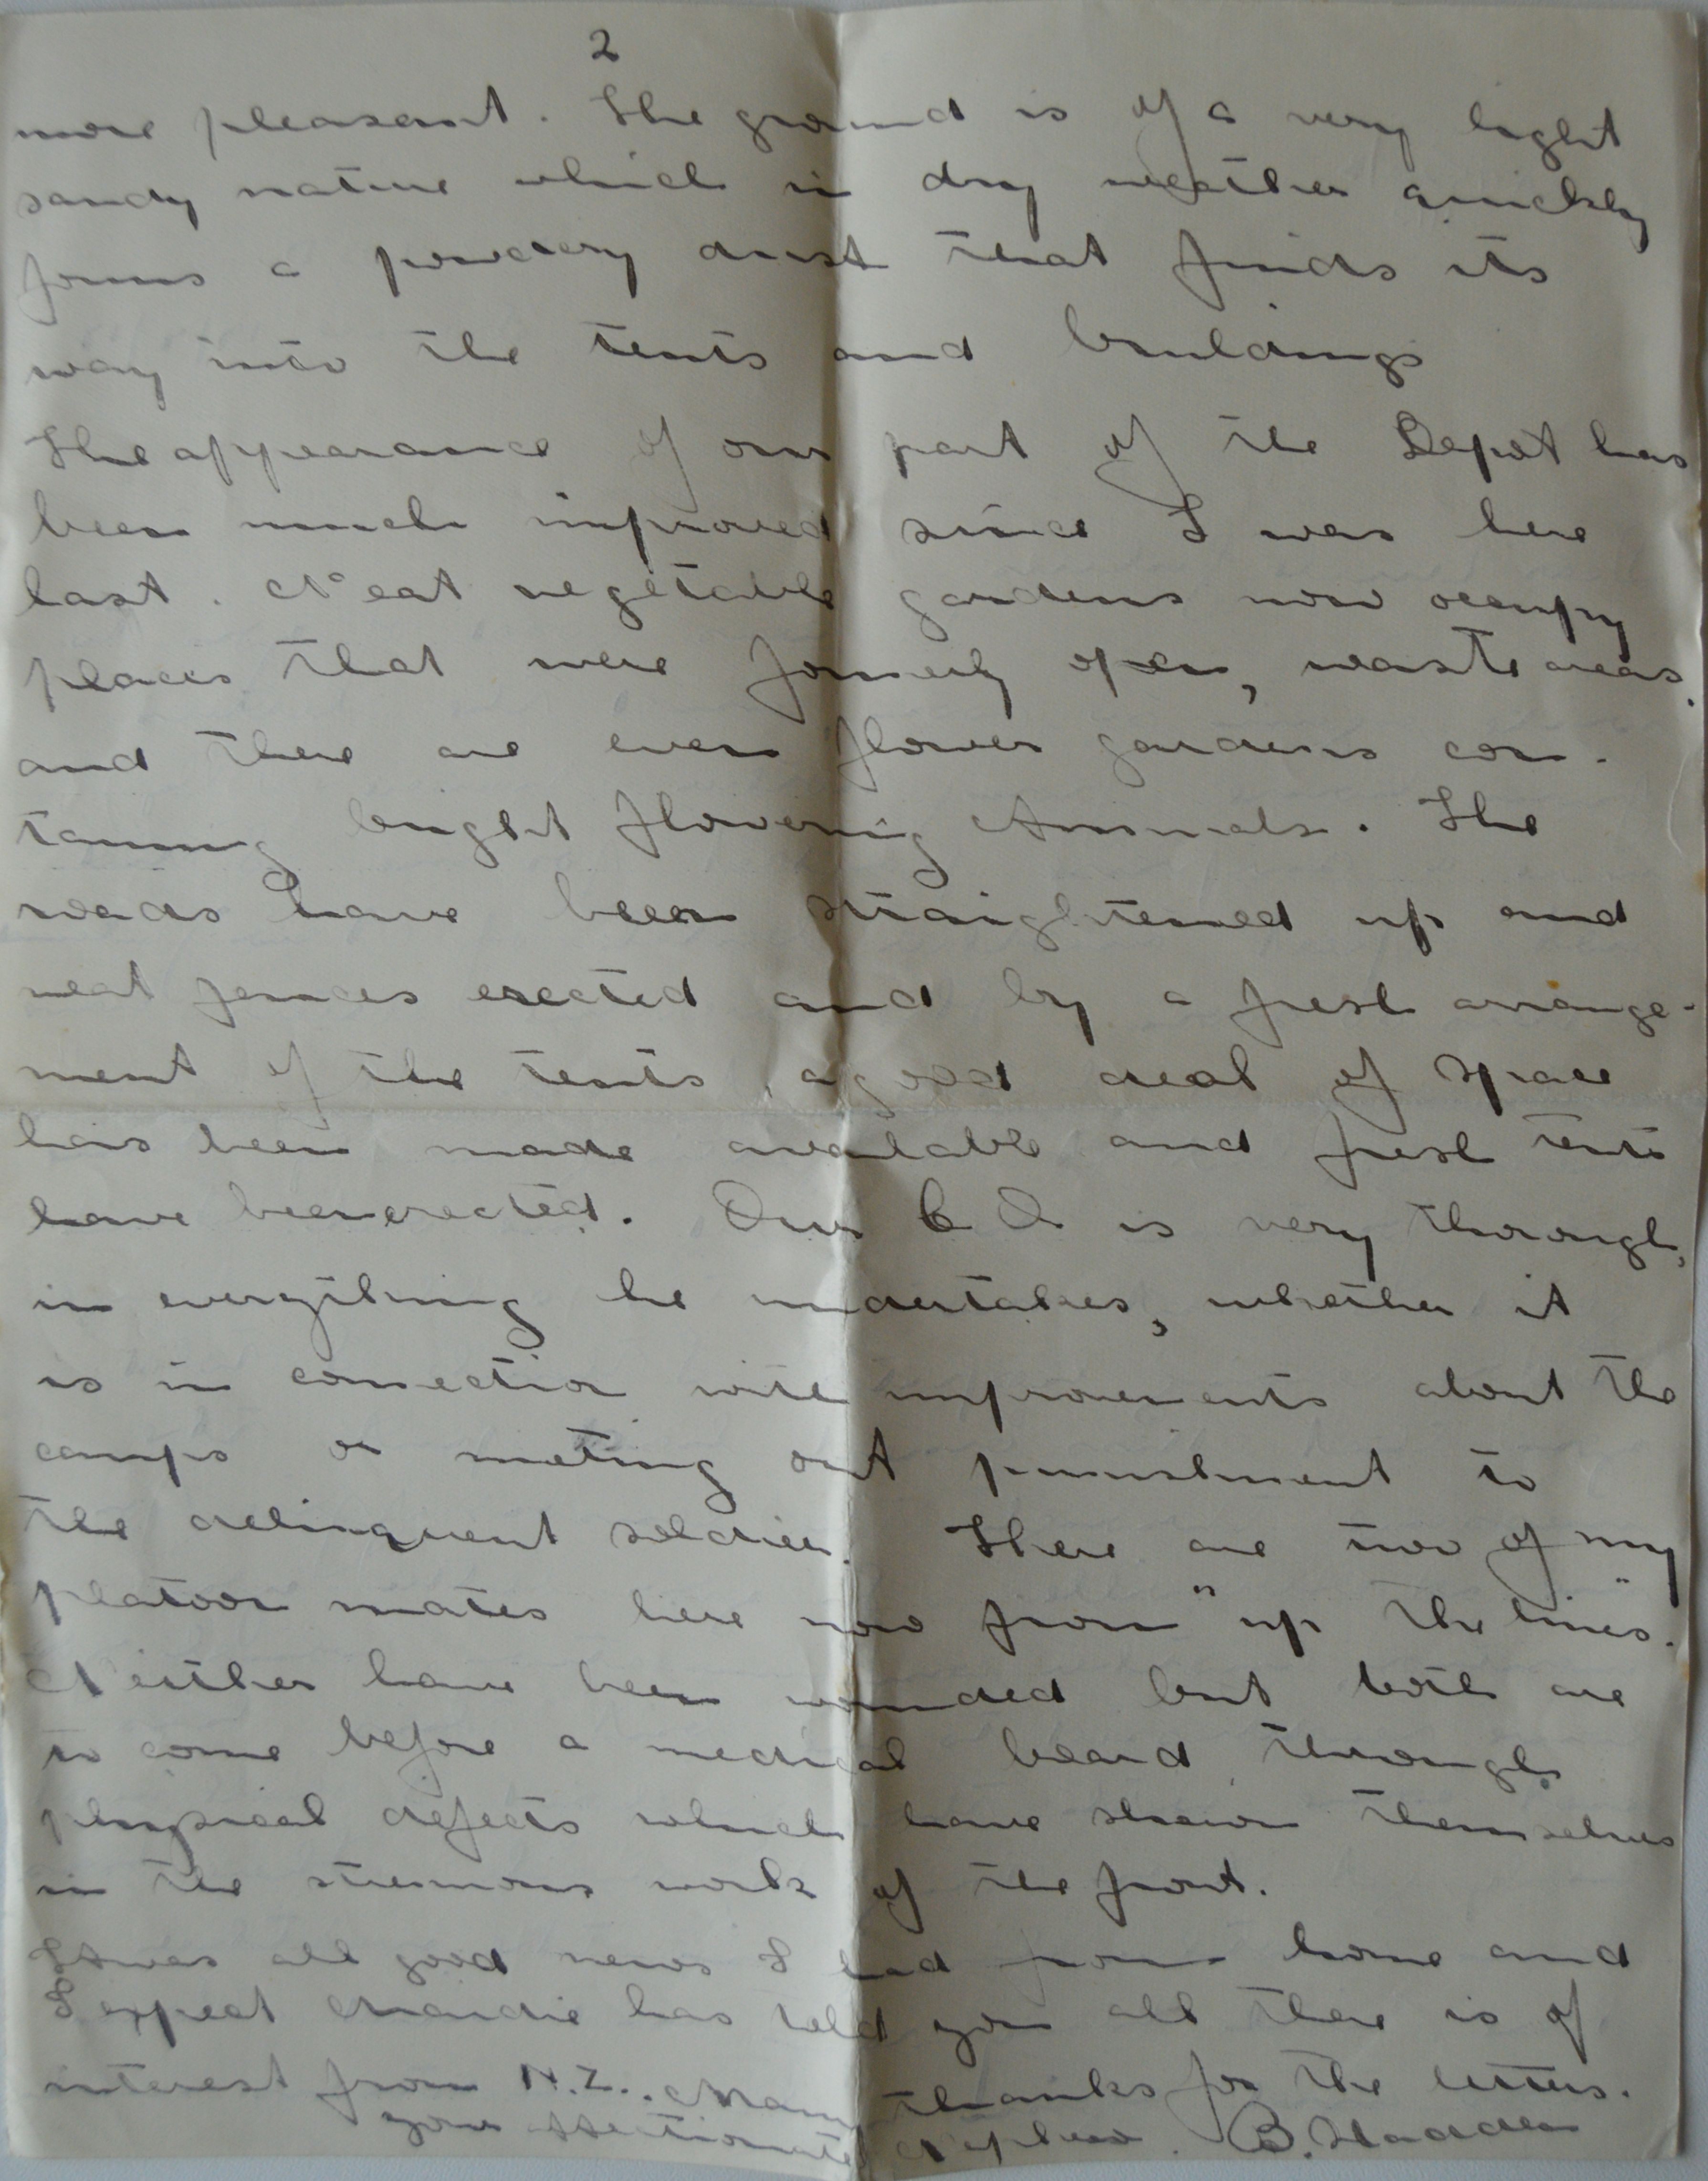 2
more pleasant. The ground is of a very light
sandy nature which in dry weather quickly
forms a powdery dust that finds its
way into the tents and buildings
The appearance of our part of the Depot has
been much improved since I was here
last. Neat vegetable gardens now occupy
places that were formerly open, waste areas.
and there are even flower gardens con-
taining bright flowering Annuals. The
roads have been straightened up and
neat fences erected and by a fresh arrange-
ment of the tents, a good deal of space
has been made available and fresh tents
have been erected. Our C O is very thorough,
in everything he undertakes, whether it
is in connection with improvements about the
camps or meting out punishment to
the delinquent soldier. There are two of my
platoon mates here now from "up the lines".
Neither have been wounded but both are
to come before a medical board through
physical defects which have shown themselves
in the strenuous work of the front.
It was all good news I had from home and
I expect Maudie has told you all there is of
interest from N.Z.. Many thanks for the letters.
your affectionate Nephew. B.